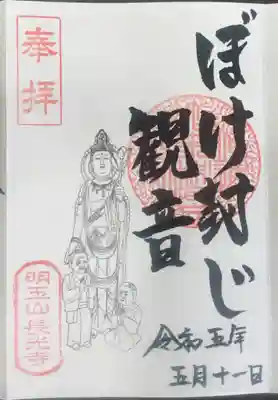 奉拝
ぼけ封じ
観音
令和五年
五月十一日
明王山長光寺